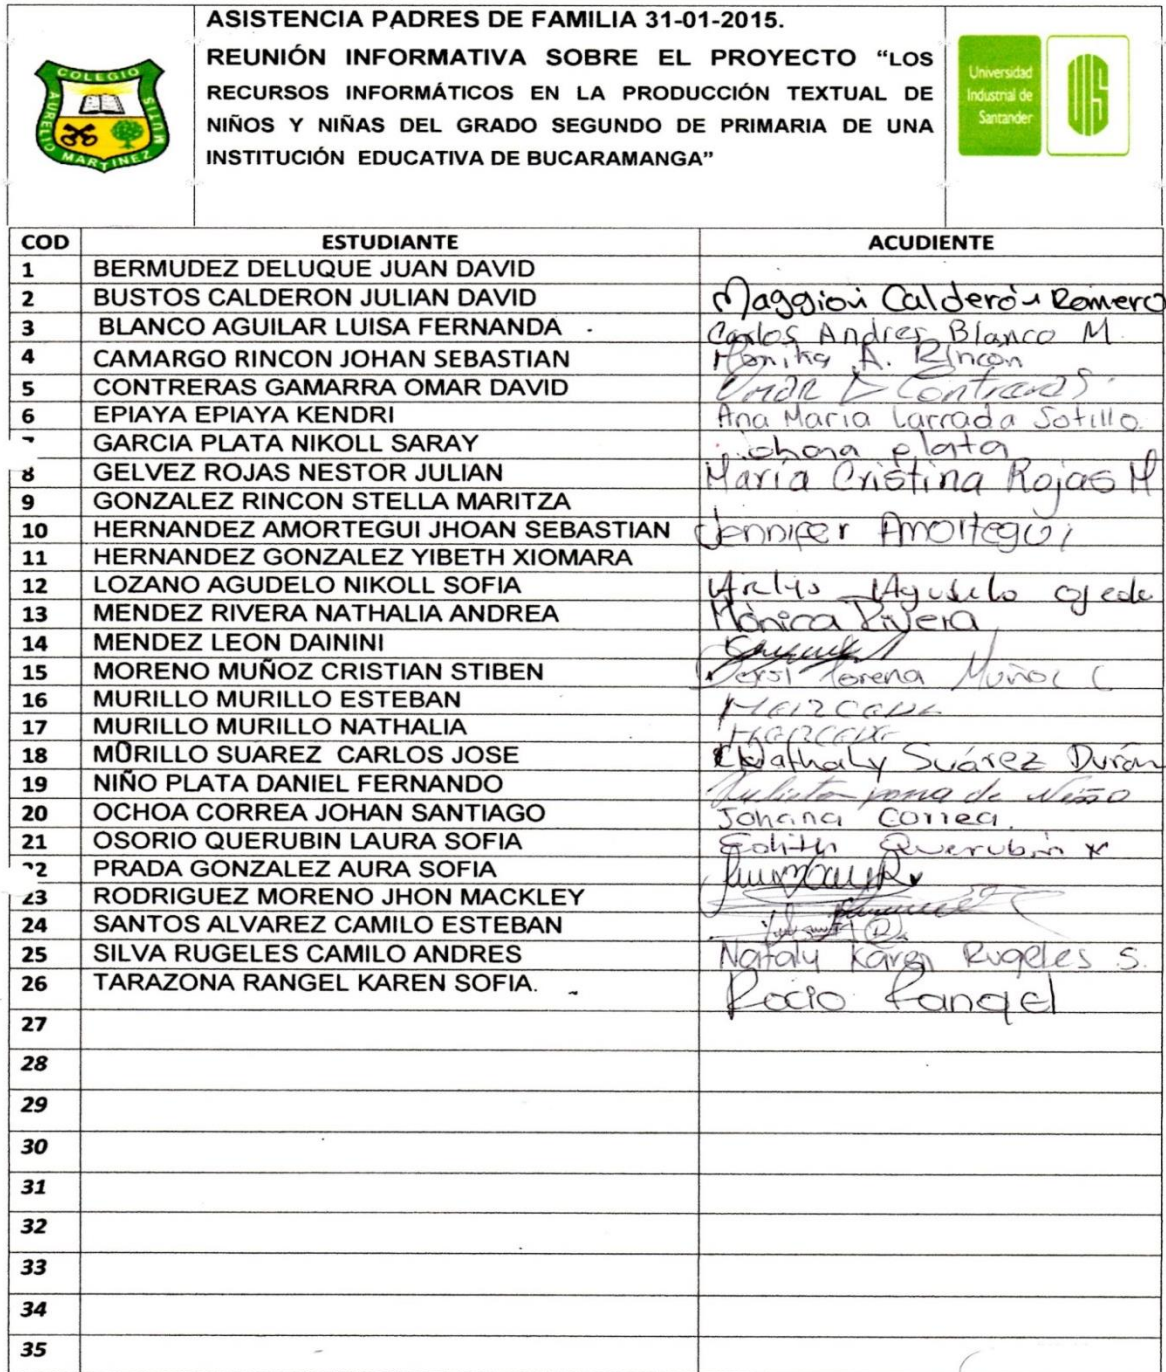 COLEGIO
AURELIO MARTINEZ MUTIS
ASISTENCIA PADRES DE FAMILIA 31-01-2015.
REUNIÓN INFORMATIVA SOBRE EL PROYECTO “LOS
RECURSOS INFORMÁTICOS EN LA PRODUCCIÓN TEXTUAL DE
NIÑOS Y NIÑAS DEL GRADO SEGUNDO DE PRIMARIA DE UNA
INSTITUCIÓN EDUCATIVA DE BUCARAMANGA”
Universidad
Industrial de
Santander
UIS
COD ESTUDIANTE ACUDIENTE
1 BERMUDEZ DELUQUE JUAN DAVID
2 BUSTOS CALDERON JULIAN DAVID Maggiovi Calderón Romero
3 BLANCO AGUILAR LUISA FERNANDA Carlos Andres Blanco M.
4 CAMARGO RINCON JOHAN SEBASTIAN Monika A. Rincon
5 CONTRERAS GAMARRA OMAR DAVID Omar D Contreras
6 EPIAYA EPIAYA KENDRI Ana Maria Larrada Sotillo
GARCIA PLATA NIKOLL SARAY johana plata
8 GELVEZ ROJAS NESTOR JULIAN María Cristina Rojas M
9 GONZALEZ RINCON STELLA MARITZA
10 HERNANDEZ AMORTEGUI JHOAN SEBASTIAN Jennifer Amortegui
11 HERNANDEZ GONZALEZ YIBETH XIOMARA
12 LOZANO AGUDELO NIKOLL SOFIA Agudelo
13 MENDEZ RIVERA NATHALIA ANDREA Mónica Rivera
14 MENDEZ LEON DAININI
15 MORENO MUÑOZ CRISTIAN STIBEN Lorena Muñoz C
16 MURILLO MURILLO ESTEBAN
17 MURILLO MURILLO NATHALIA
18 MURILLO SUAREZ CARLOS JOSE Nathaly Suárez Durán
19 NIÑO PLATA DANIEL FERNANDO de Niño
20 OCHOA CORREA JOHAN SANTIAGO Johana Correa.
21 OSORIO QUERUBIN LAURA SOFIA Edith Querubin
22 PRADA GONZALEZ AURA SOFIA
23 RODRIGUEZ MORENO JHON MACKLEY
24 SANTOS ALVAREZ CAMILO ESTEBAN
25 SILVA RUGELES CAMILO ANDRES Nataly Karen Rugeles S.
26 TARAZONA RANGEL KAREN SOFIA. Rocio Rangel
27
28
29
30
31
32
33
34
35